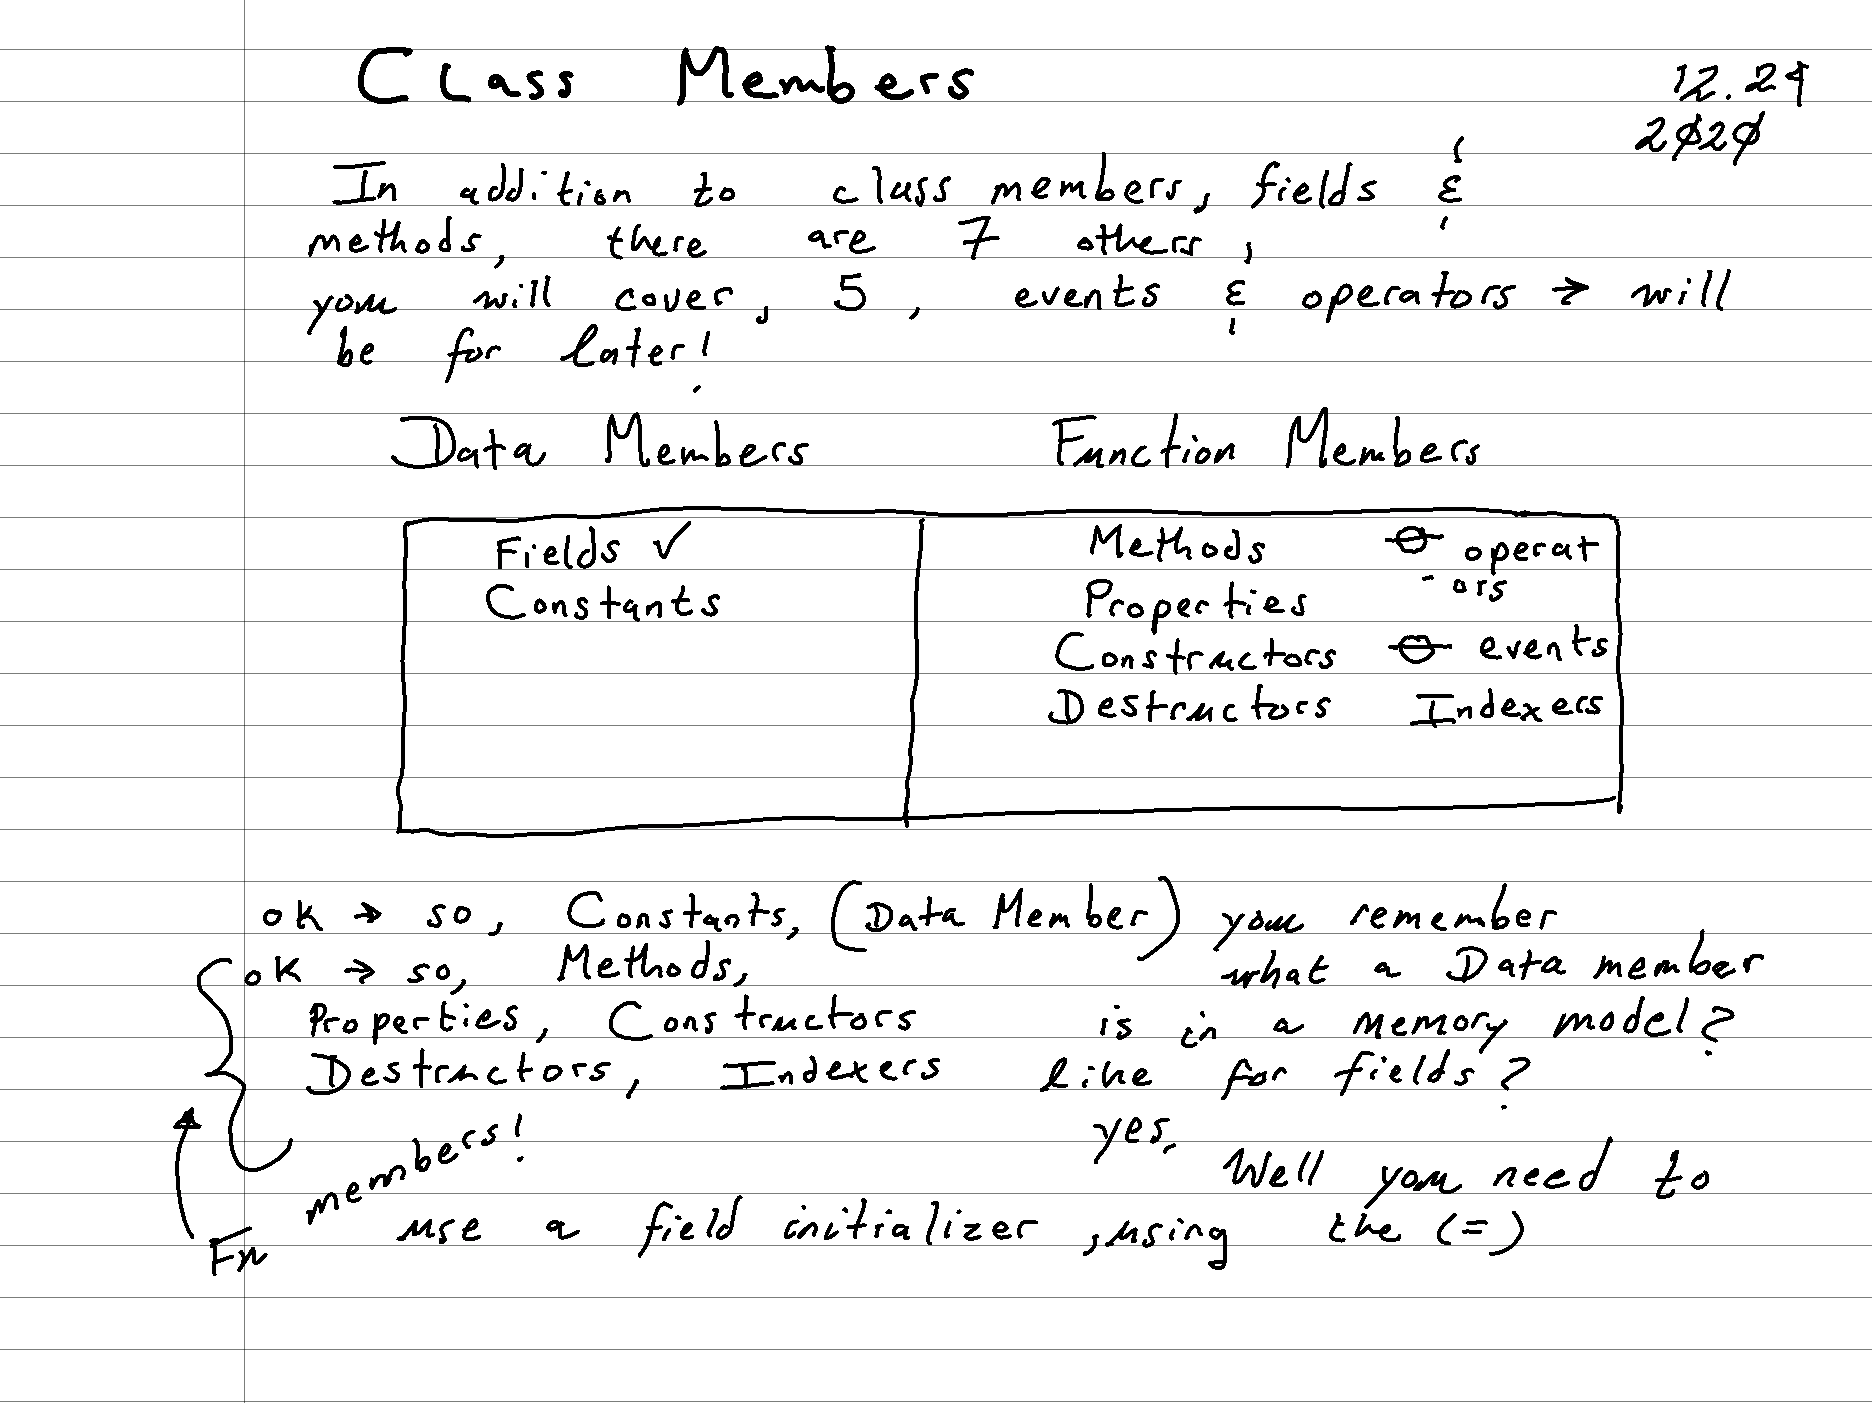 Class Members
12.24
2020
In addition to class members, fields &
methods, there are 7 others,
you will cover, 5, events & operators → will
be for later!
Data Members
Function Members
Fields ✓
Constants
Methods
Properties
Constructors
Destructors
operat
ors
events
Indexers
ok → so, Constants, (Data Member) you remember
what a Data member
is in a memory model?
like for fields?
yes.
ok → so, Methods,
Properties, Constructors
Destructors, Indexers
members!
Fn
Well you need to
use a field initializer, using the (=)